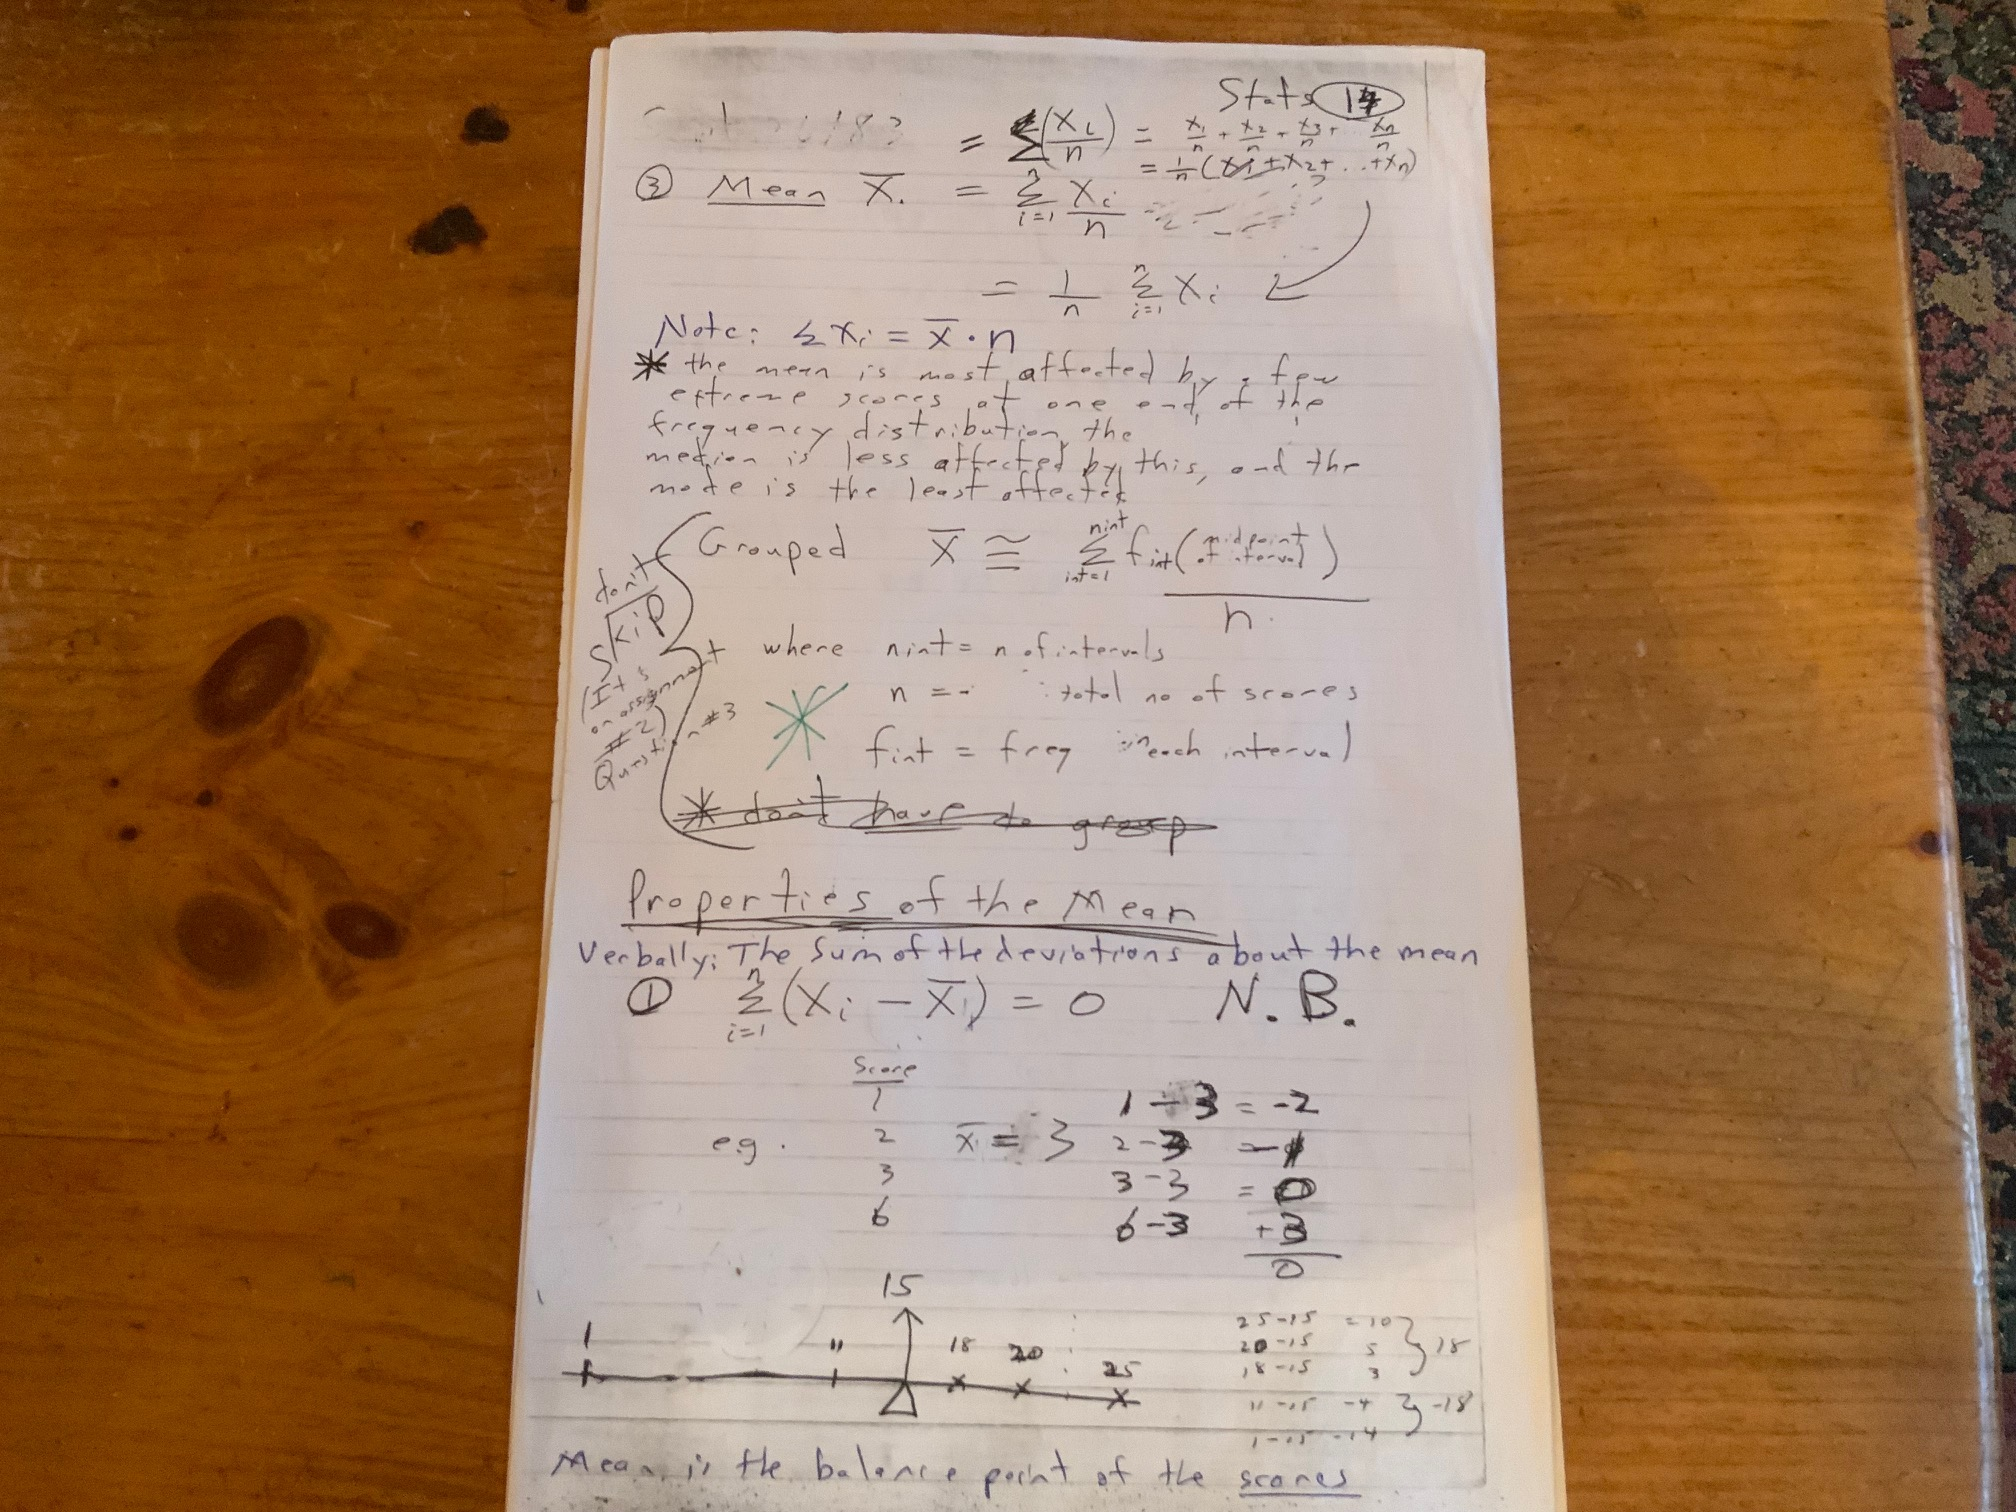 Stats 14
= Σ(Xi/n) = X1/n + X2/n + X3/n + ... Xn/n
= 1/n (X1 + X2 + ... + Xn)
③ Mean X̄. = Σ(i=1 to n) Xi/n
= 1/n Σ(i=1 to n) Xi
Note: ΣXi = X̄ · n
* the mean is most affected by a few
extreme scores at one end of the
frequency distribution, the
median is less affected by this, and the
mode is the least affected
Grouped X̄ ≅ Σ(int=1 to nint) fint(midpoint of interval) / n
don't
skip
(It's
on assignment
#2)
Question #3
where nint = n of intervals
n = total no of scores
* fint = freq in each interval
* don't have to group
Properties of the Mean
Verbally: The sum of the deviations about the mean
① Σ(i=1 to n) (Xi − X̄) = 0 N.B.
Score
1 1 − 3 = -2
e.g. 2 X̄ = 3 2 - 3 = -1
3 3 - 3 = 0
6 6 - 3 + 3
0
15
1 11 18 20 25
25 - 15 = 10
20 - 15 5 } 18
18 - 15 3
11 - 15 -4 } -18
1 - 15 -14
Mean is the balance point of the scores